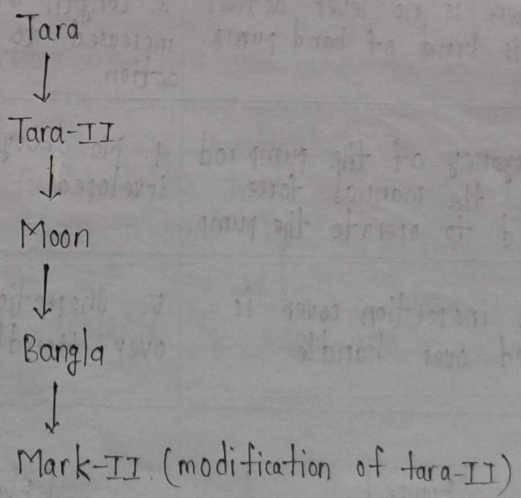 Tara
↓
Tara-II
↓
Moon
↓
Bangla
↓
Mark-II. (modification of tara-II)